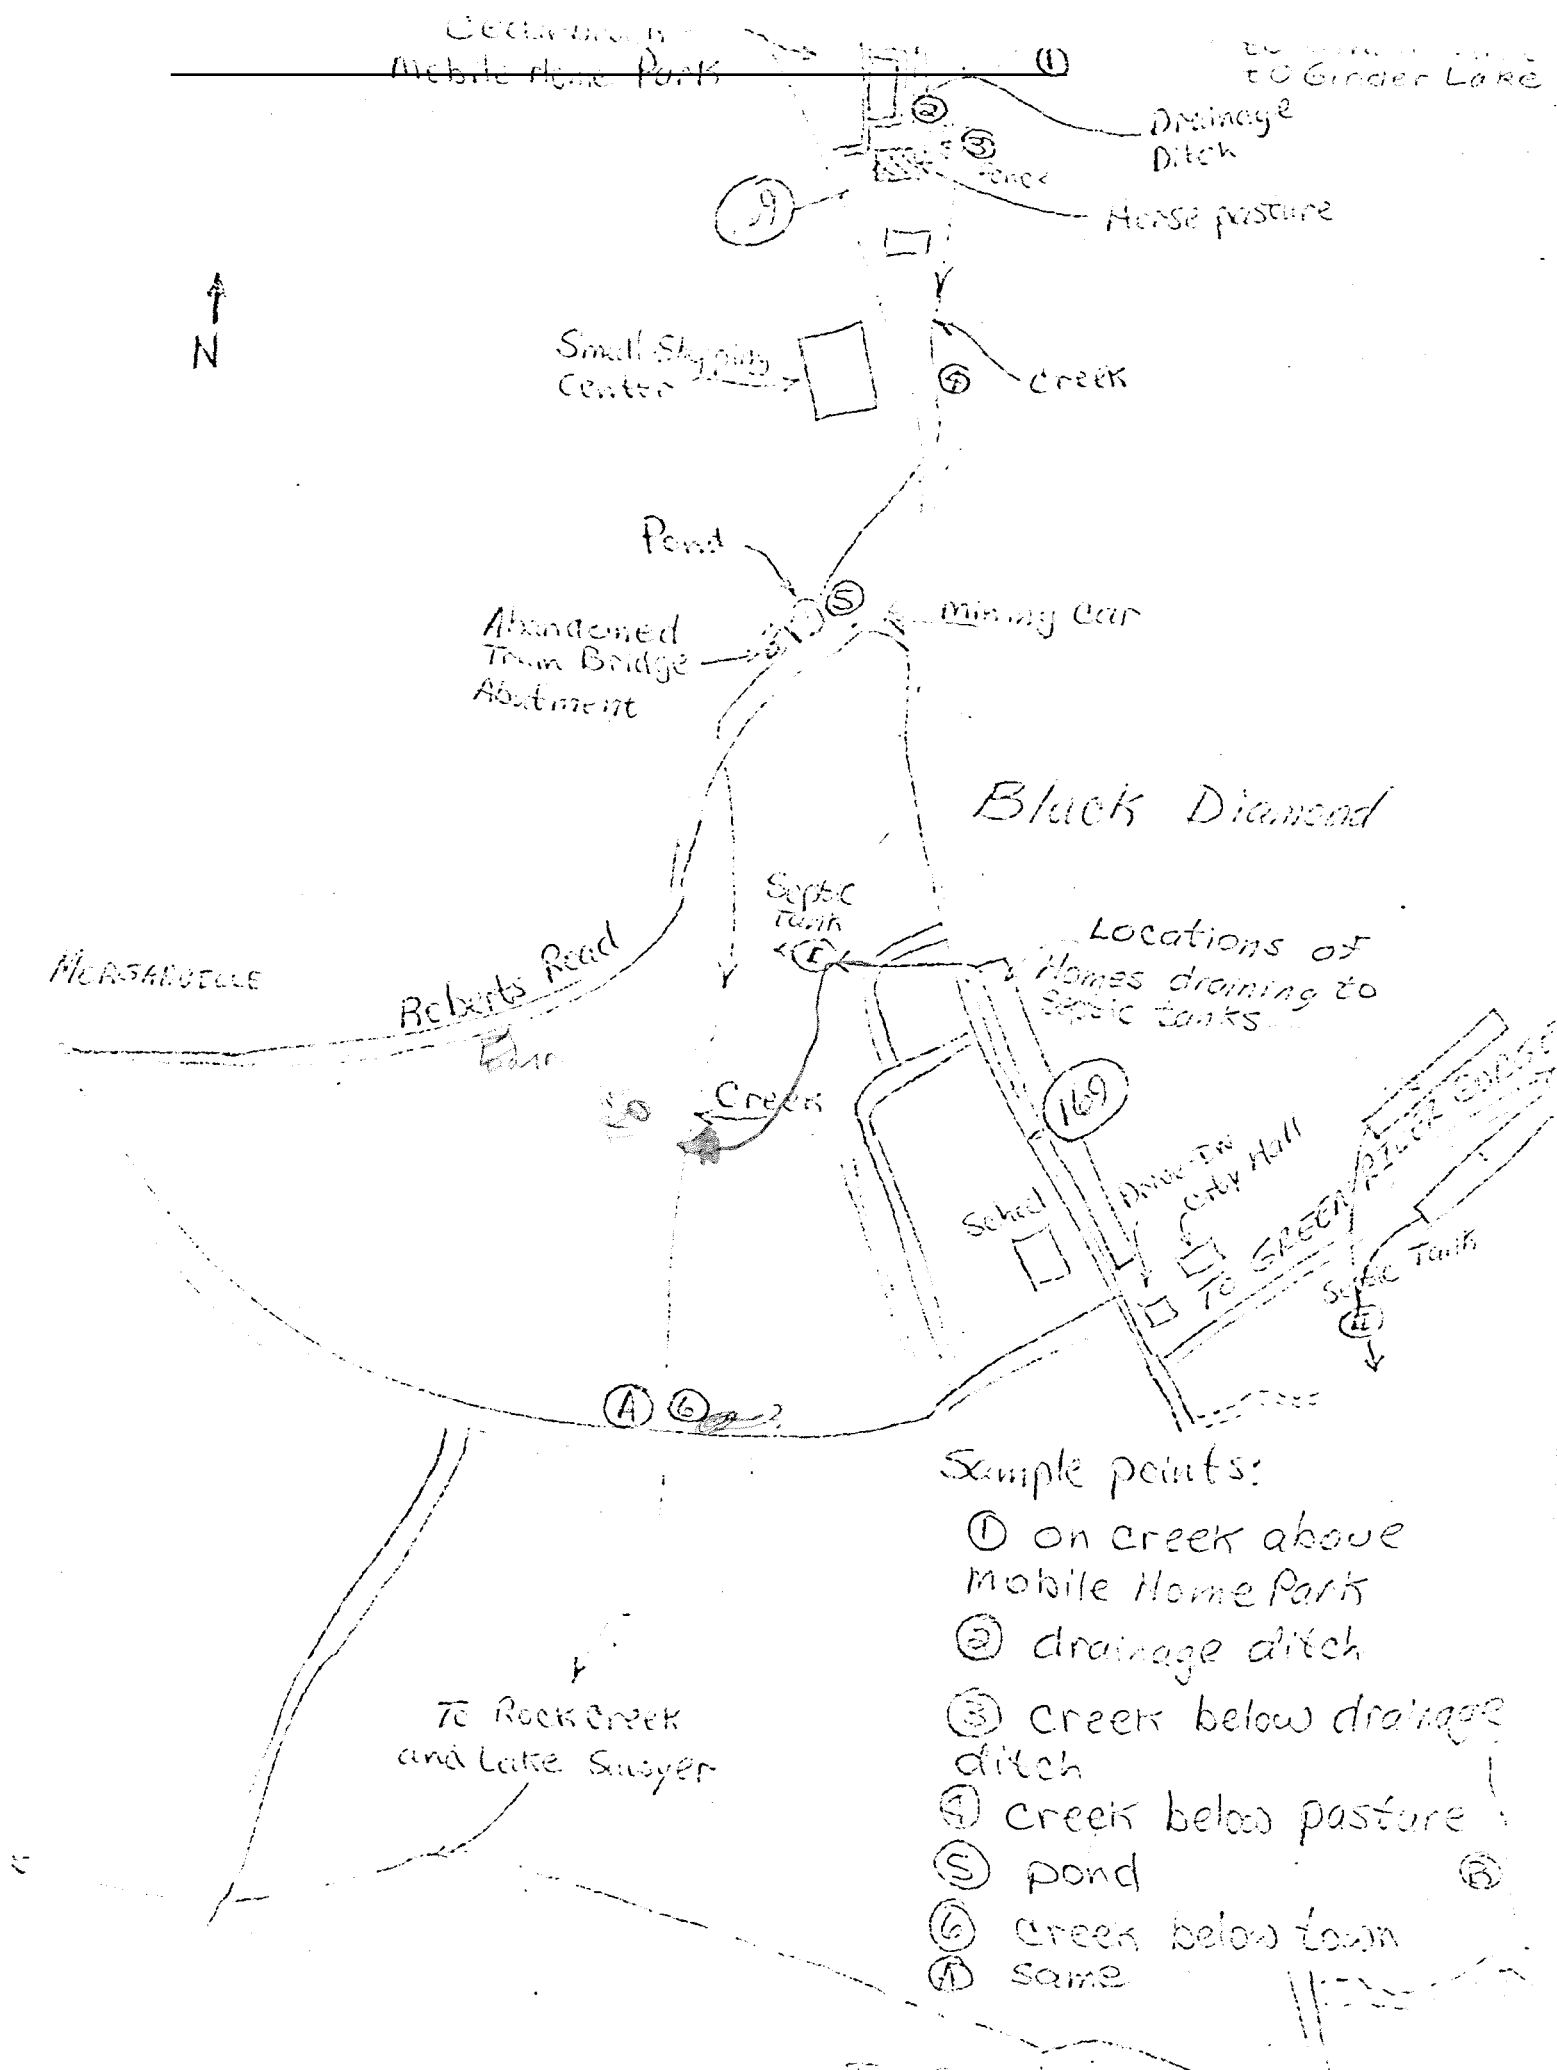 Mobile Home Park
①
to Ginder Lake
②
Drainage
Ditch
③
fence
Horse pasture
N
Small Shopping
Center
④
Creek
Pond
⑤
Mining Car
Abandoned
Train Bridge
Abutment
Black Diamond
Septic
Tank
Locations of
Homes draining to
Septic tanks
Roberts Road
Creek
169
Drive-In
City Hall
School
To GREEN RIVER GORGE
Septic Tank
II
A ⑥
?
Sample points:
① on creek above
Mobile Home Park
② drainage ditch
③ Creek below drainage
ditch
④ Creek below pasture
⑤ pond
B
⑥ Creek below town
A same
To Rock Creek
and Lake Sawyer